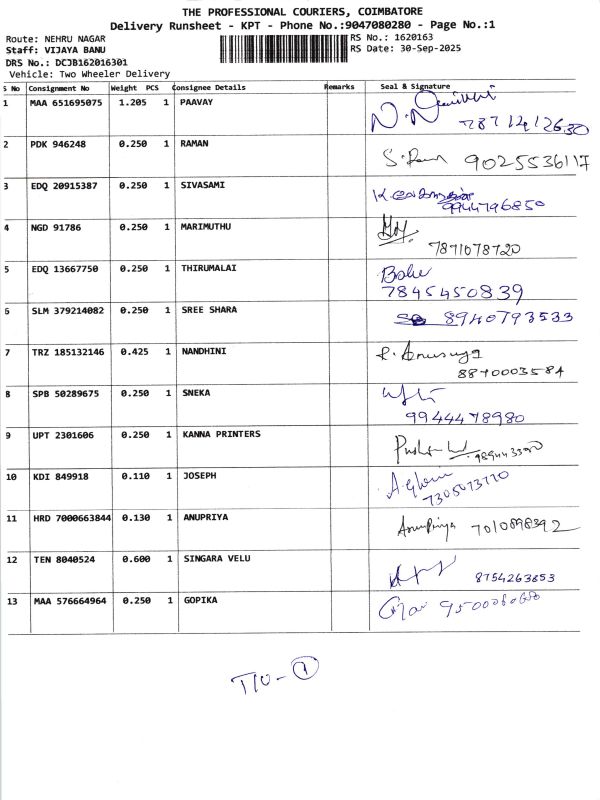 THE PROFESSIONAL COURIERS, COIMBATORE
Delivery Runsheet - KPT - Phone No.:9047080280 - Page No.:1
Route: NEHRU NAGAR
Staff: VIJAYA BANU
DRS No.: DCJB162016301
Vehicle: Two Wheeler Delivery
RS No.: 1620163
RS Date: 30-Sep-2025
S No Consignment No Weight PCS Consignee Details Remarks Seal & Signature
1 MAA 651695075 1.205 1 PAAVAY 7871412630
2 PDK 946248 0.250 1 RAMAN 9025536117
3 EDQ 20915387 0.250 1 SIVASAMI 9944796850
4 NGD 91786 0.250 1 MARIMUTHU 7871078720
5 EDQ 13667750 0.250 1 THIRUMALAI
7845450839
6 SLM 379214082 0.250 1 SREE SHARA 8940793533
7 TRZ 185132146 0.425 1 NANDHINI R. Anusuya
8870003584
8 SPB 50289675 0.250 1 SNEKA
9944478980
9 UPT 2301606 0.250 1 KANNA PRINTERS
10 KDI 849918 0.110 1 JOSEPH
7305073770
11 HRD 7000663844 0.130 1 ANUPRIYA AnuPriya 7010898392
12 TEN 8040524 0.600 1 SINGARA VELU 8754263653
13 MAA 576664964 0.250 1 GOPIKA